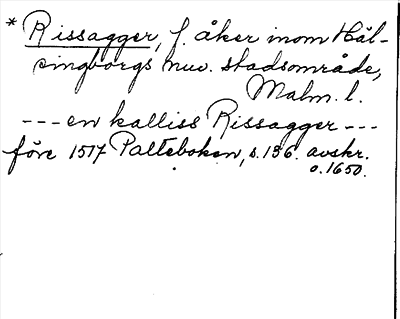 * Rissagger, f. åker inom Häl-
singborgs nuv. stadsområde,
Malm. l.
--- en kalliss Rissagger ---
före 1517 Palteboken, s. 136. avskr.
o. 1650.